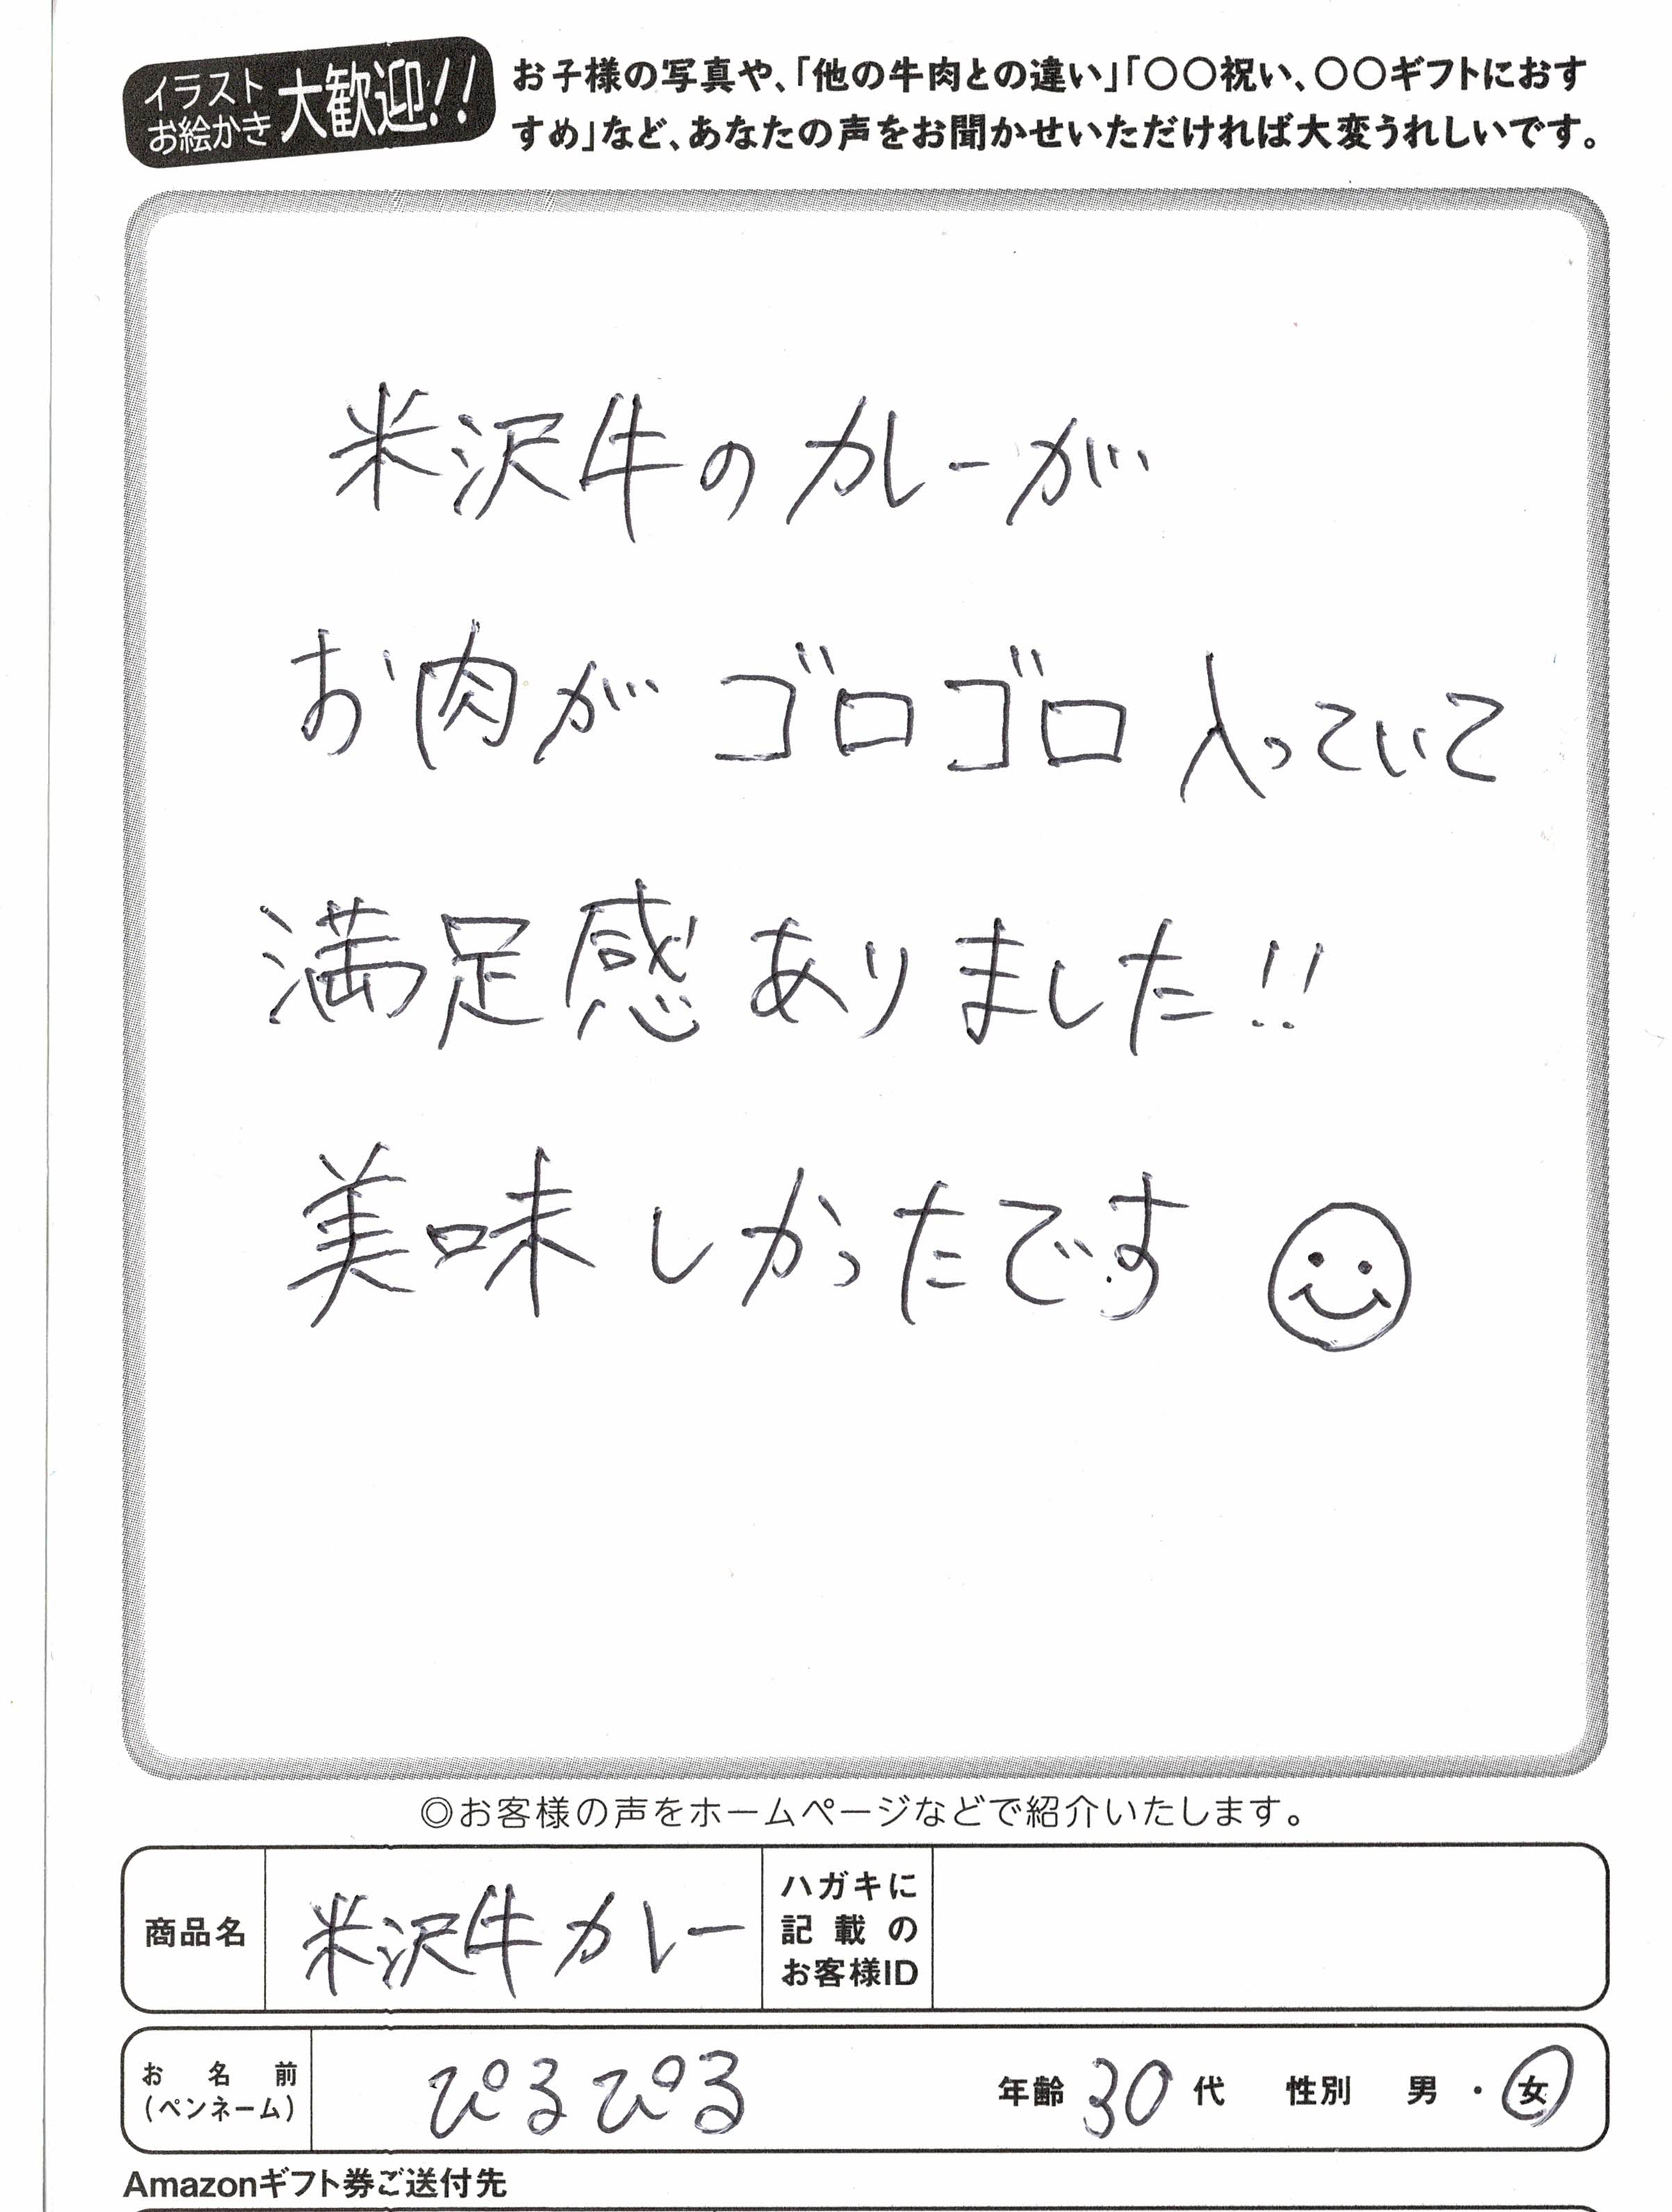 イラスト
お絵かき
大歓迎!!
お子様の写真や、「他の牛肉との違い」「〇〇祝い、〇〇ギフトにおす
すめ」など、あなたの声をお聞かせいただければ大変うれしいです。
米沢牛のカレーが
お肉がゴロゴロ入っていて
満足感ありました!!
美味しかったです
◎お客様の声をホームページなどで紹介いたします。
商品名
米沢牛カレー
ハガキに
記載の
お客様ID
お名前
(ペンネーム)
ぴるぴる
年齢 30 代 性別 男・女
Amazonギフト券ご送付先